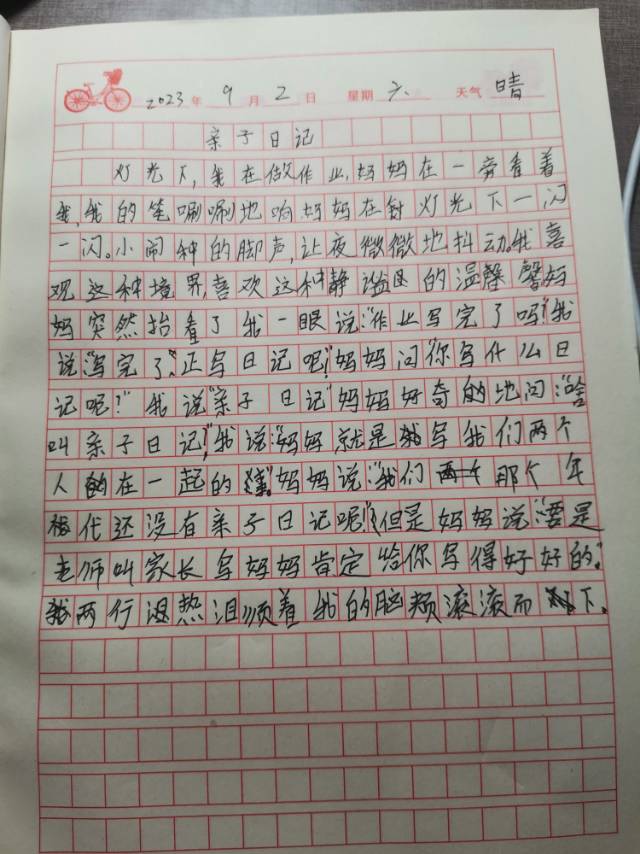 2023年9月2日 星期六 天气晴
亲子日记
灯光下,我在做作业,妈妈在一旁看着
我,我的笔唰唰地响妈妈在针灯光下一闪
一闪。小闹钟的脚声,让夜微微地抖动。我喜
观这种境界,喜欢这种静谧的温馨馨妈
妈突然抬看了我一眼说:“作业写完了吗?”我
说:“写完了,正写日记呢!”妈妈问:“你写什么日
记呢?”我说:“亲子日记”妈妈好奇的地问:“啥
叫亲子日记,”我说:“妈妈,就是我写我们两个
人的在一起的事。”妈妈说:“我们那个年
代还没有亲子日记呢”但是妈妈说:“要是
老师叫家长写妈妈肯定给你写得好好的。”
我两行温热泪顺着我的脸颊滚滚而下。